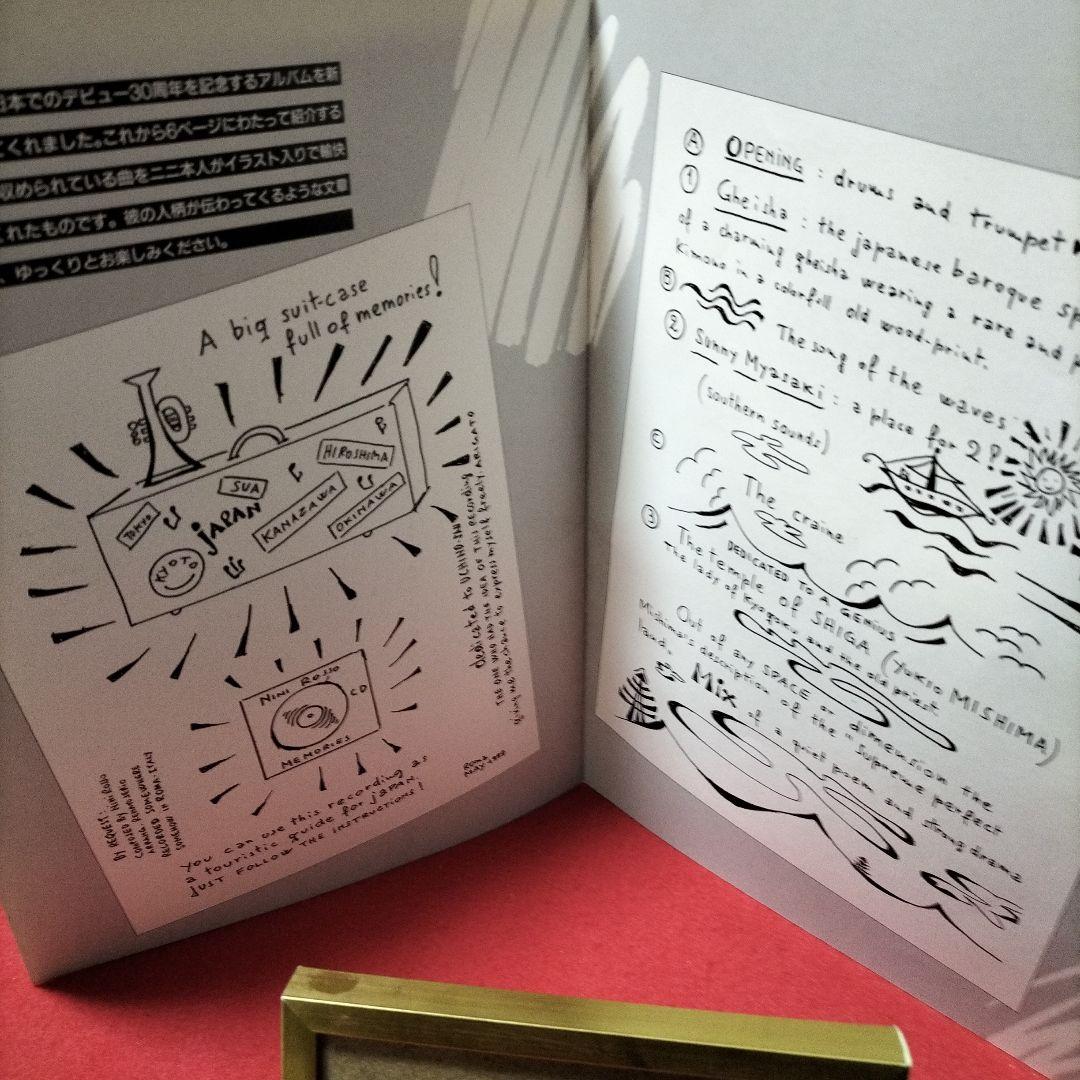 日本でのデビュー30周年を記念するアルバムを新
くれました。これから6ページにわたって紹介する
収められている曲をニニ本人がイラスト入りで愉快
れたものです。彼の人柄が伝わってくるような文章
、ゆっくりとお楽しみください。
A big suit-case
full of memories!
TOKYO
SUA
JAPAN
HIROSHIMA
KANAZAWA
OKINAWA
KYOTO
NINI ROSSO
CD
MEMORIES
Dedicated to UCHINO-SAN
THE ONE WHO HAD THE IDEA OF THIS RECORDING
giving me the chance to express myself freely ARIGATO
BY REQUEST: NINI ROSSO
COMPOSED BEYOND
ARRANG. SOMEWHERE
RECORDED IN ROMA-ITALY
SOMEHOW
ROMA
MAY
You can use this recording as
a touristic guide for Japan.
JUST FOLLOW THE INSTRUCTIONS!
A OPENING : drums and trumpet
1 Gheisha : the japanese baroque
of a charming gheisha wearing a rare and
kimono in a colorfull old wood-print.
B The song of the waves
2 Sunny Myasaki : a place for 2?!
(southern sounds)
C The craine
DEDICATED TO A GENIUS
3 The temple of SHIGA (YUKIO MISHIMA)
The lady of Kyogoku and the old priest
Out of any SPACE or dimension the
Mishima's description of the "Supreme perfect
land.
Mix of a quiet poem and strong drama